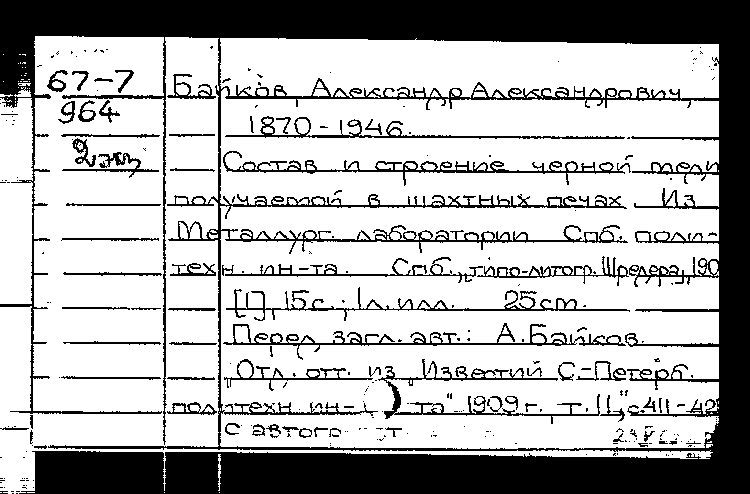 67-7
964
2 экз
Байков, Александр Александрович,
1870-1946.
Состав и строение черной меди
получаемой в шахтных печах. Из
Металлург. лаборатории Спб. поли-
техн. ин-та. Спб., "типо-литогр. Шредера", 190
[1], 15 с.; 1 л. илл. 25 cm.
Перед загл. авт.: А. Байков.
"Отд. отт. из "Известий С.-Петерб.
политехн. ин-та" 1909 г., т. 11", с. 411-42
с автог